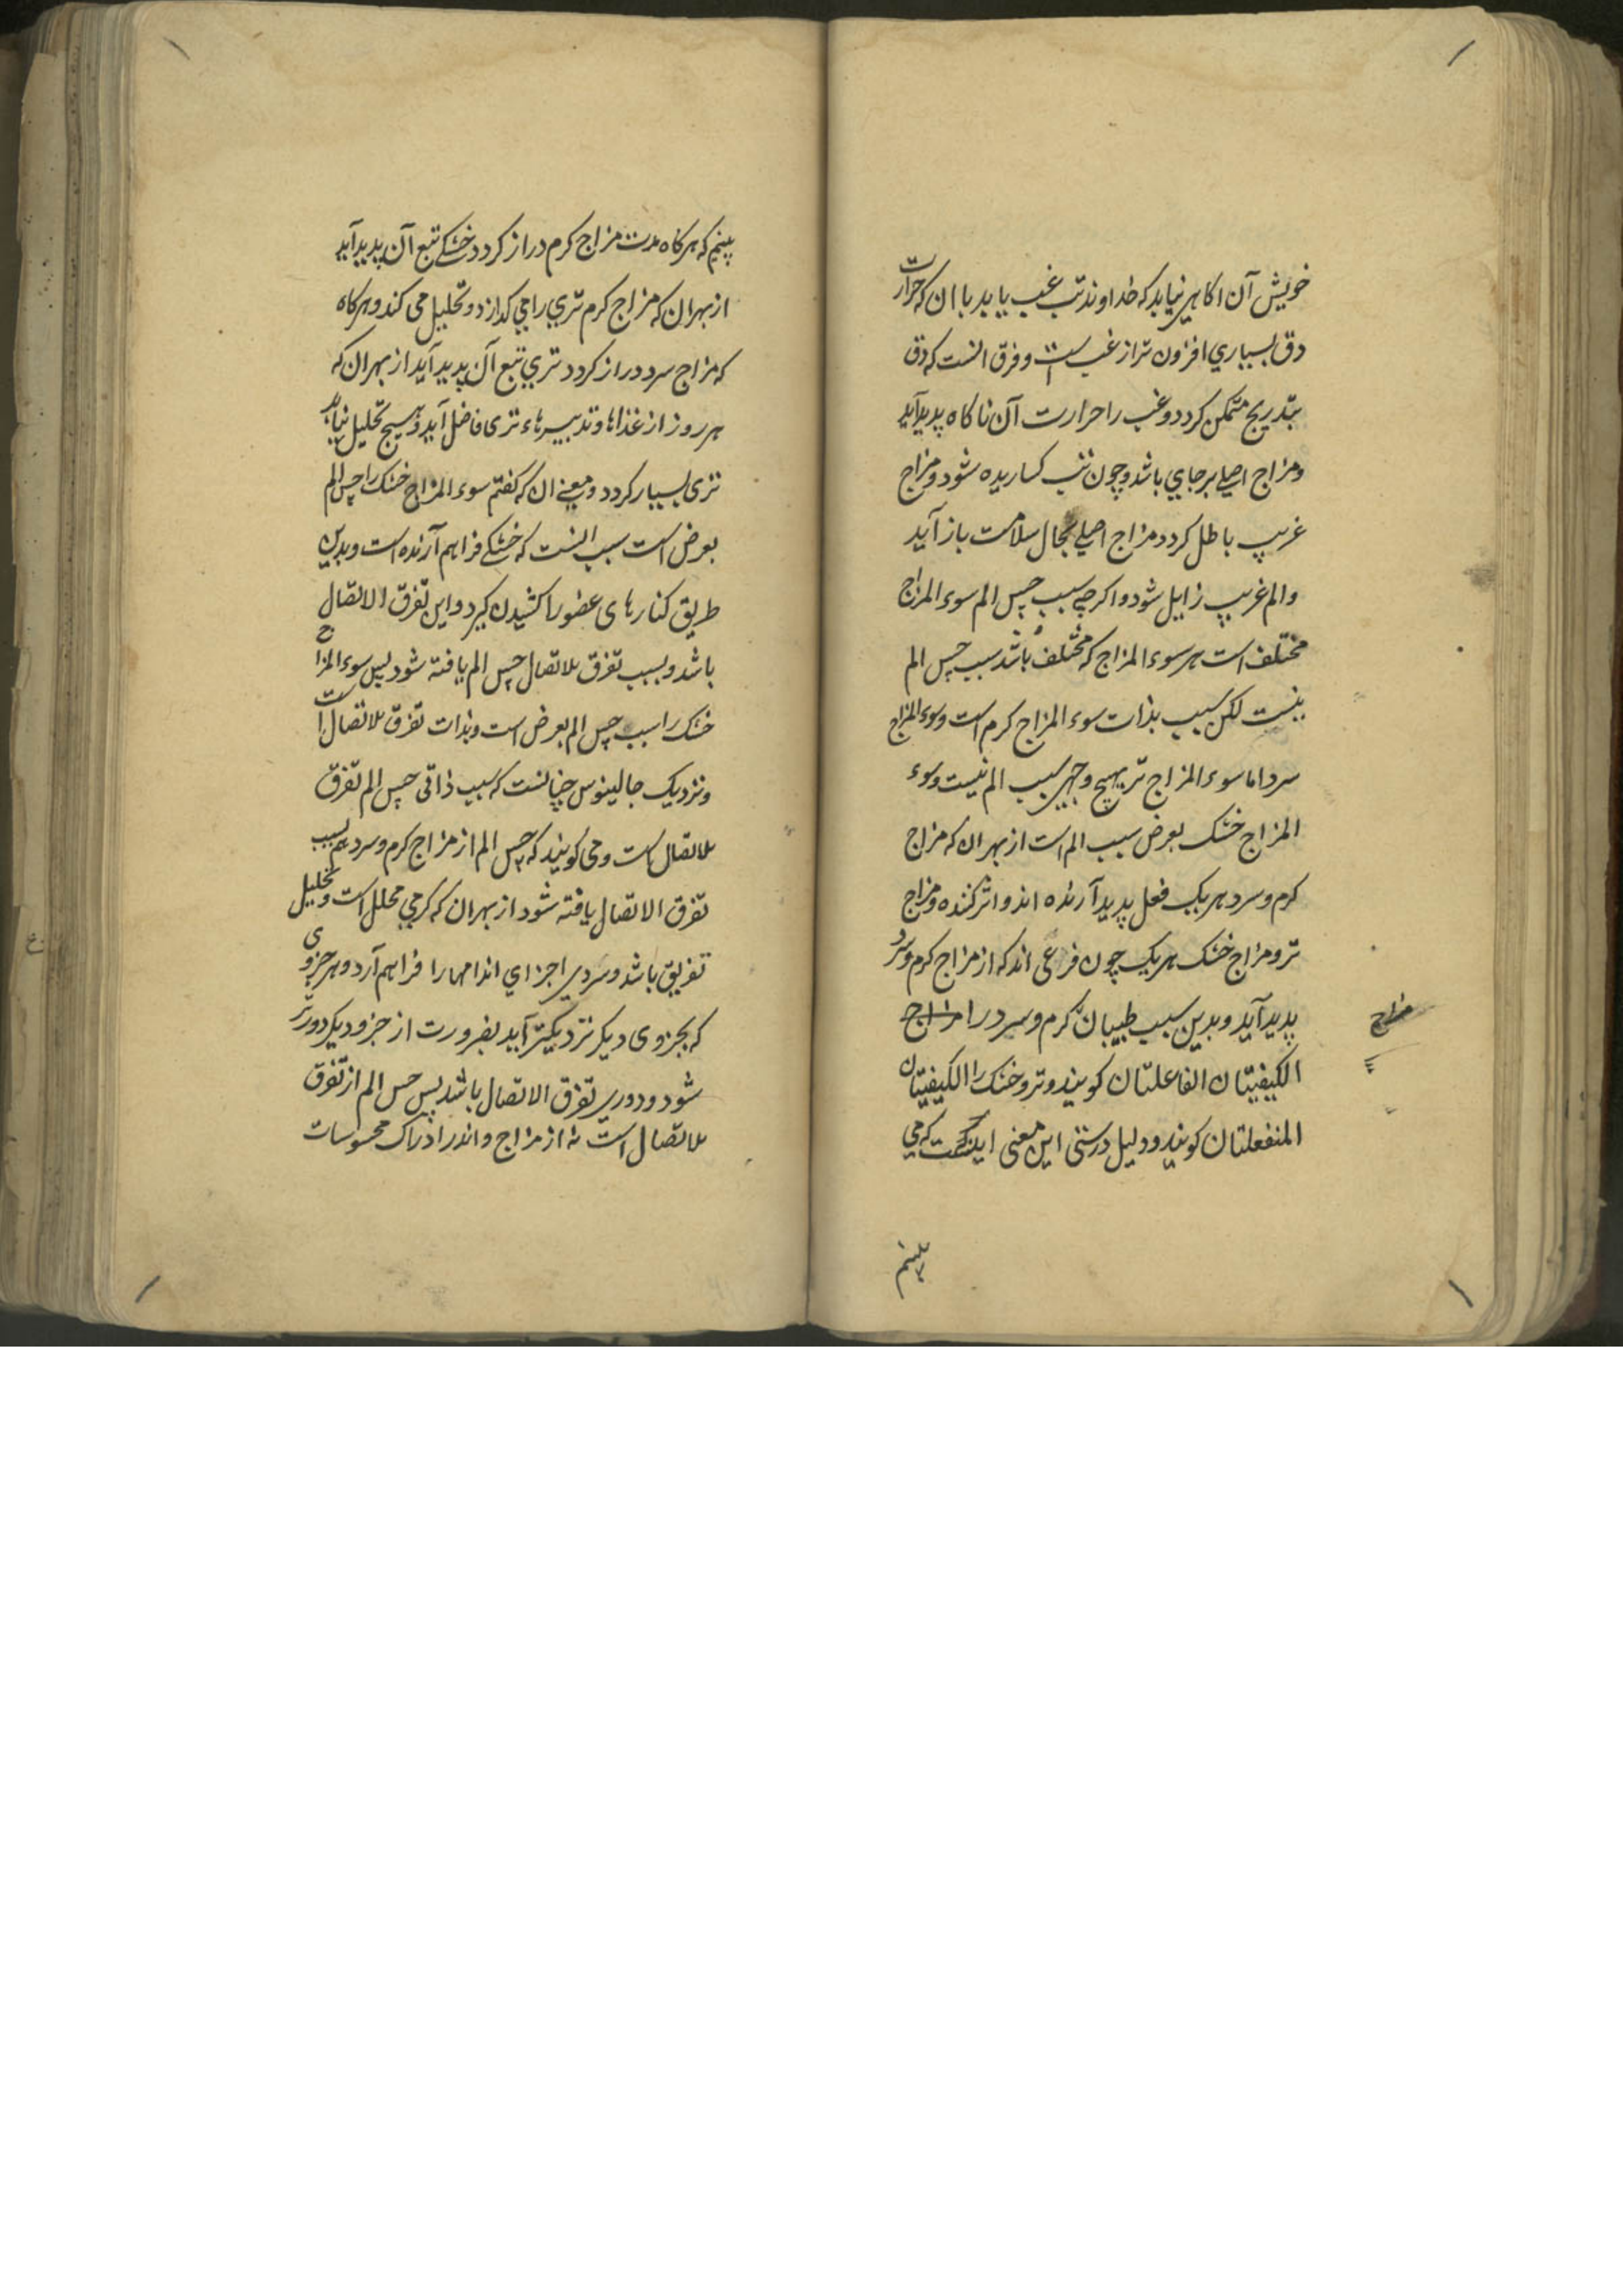 خویش آن اکاهی نیابد که خداوند تب غب یابد با ان که حرارت
دق بسیاري افزون تر از غب است و فرق انست که دق
بتدریج متمکن کردد و غب را حرارت آن ناکاه پدید آید
و مزاج اصلي بر جاي باشد و چون تب کساریده شود و مزاج
غریب باطل کردد و مزاج اصلي بحال سلامت باز آید
و الم غریب زایل شود و اکر چه سبب حس الم سوء المزاج
مختلف است هر سوء المزاج که مختلف باشد سبب حس الم
نیست لکن سبب بذات سوء المزاج کرم است و سوء المزاج
سرد اما سوء المزاج تر بهیچ وجهی سبب الم نیست و سوء
المزاج خشک بعرض سبب الم است از بهر ان که مزاج
کرم و سرد هر یک فعل پدید آرنده اند و اثر کننده و مزاج
تر و مزاج خشک هر یک چون فرعی اند که از مزاج کرم و سرد
پدید آید و بدین سبب طبیبان کرم و سرد را مزاج
مزاج
الکیفیتان الفاعلتان کویند و تر و خشک را الکیفیتان
المنفعلتان کویند و دلیل درستی این معنی اینست که مي
بینم
بینم که هر کاه مدت مزاج کرم دراز کردد خشکي تبع آن پدید آید
از بهر ان که مزاج کرم تري را مي کدازد و تحلیل می کند و هر کاه
که مزاج سرد دراز کردد تري تبع آن پدید آید از بهر ان که
هر روز از غذاها و تدبیرهاء تری فاضل آید و هیچ تحلیل نیابد
تری بسیار کردد و معني ان که کفتم سوء المزاج خشک را حس الم
بعرض است سبب انست که خشکي فراهم آرنده است و بدین
طریق کنارهای عضو را کشیدن کیرد و این تفرق الاتصال
باشد و بسبب تفرق الاتصال حس الم یافته شود پس سوء المزاج
خشک را سبب حس الم بعرض است و بذات تفرق الاتصال است
و نزدیک جالینوس چنانست که سبب ذاتی حس الم تفرق
الاتصال است و می کویند که حس الم از مزاج کرم و سرد هم بسبب
تفرق الاتصال یافته شود از بهر ان که کرمي محلل است و تحلیل
تفریق باشد و سردی اجزاي اندامها را فراهم آرد و هر جزوی
که بجزوی دیکر نزدیکتر آید بضرورت از جزو دیکر دورتر
شود و دوري تفرق الاتصال باشد پس حس الم از تفرق
الاتصال است نه از مزاج و اندر ادراک محسوسات